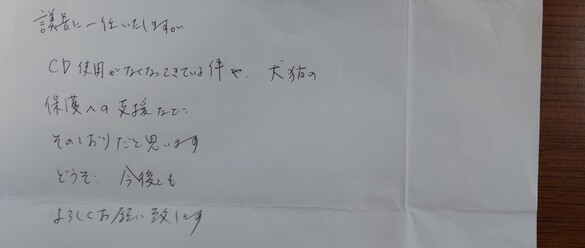 議長に一任いたしますが
CD使用がなくなってきている件や、犬猫の
保護への支援など
そのとおりだと思います
どうぞ 今後とも
よろしくお願い致します